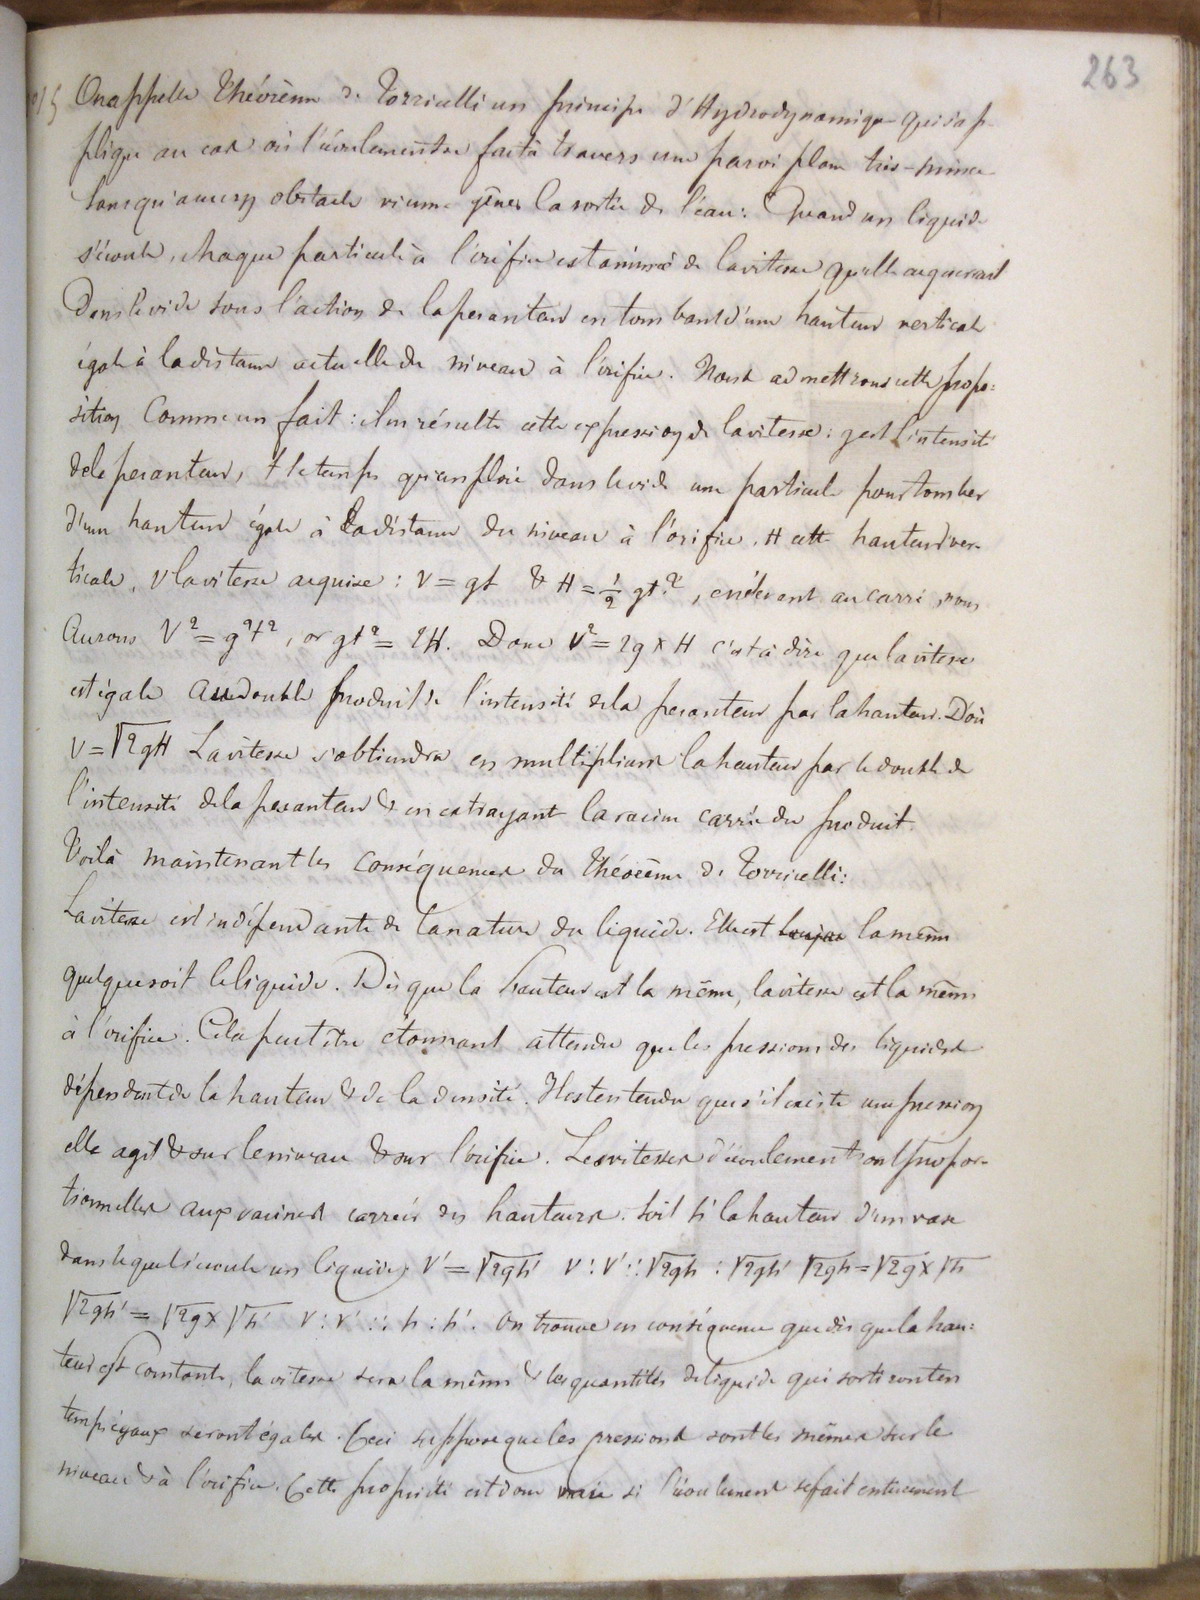 263
On appelle Théorème de Torricelli un principe d'Hydrodynamique qui s'ap-
plique au cas où l'écoulement se fait à travers une paroi plane très-mince
lorsqu'aucun obstacle vienne gêner la sortie de l'eau : Quand un liquide
s'écoule, chaque particule à l'orifice est animée de la vitesse qu'elle acquerrait
dans le vide sous l'action de la pesanteur en tombant d'une hauteur verticale
égale à la distance actuelle du niveau à l'orifice. Nous admettrons cette propo=
sition comme un fait : il en résulte cette expression de la vitesse : g est l'intensité
de la pesanteur, t le temps qu'emploie dans le vide une particule pour tomber
d'une hauteur égale à la distance du niveau à l'orifice, H cette hauteur ver-
ticale, V la vitesse acquise : V = gt & H = 1/2 gt², en élevant au carré, nous
aurons V² = g²t², or gt² = 2H. Donc V² = 2g × H c'est à dire que la vitesse
est égale au double produit de l'intensité de la pesanteur par la hauteur. D'où
V = √2gH La vitesse s'obtiendra en multipliant la hauteur par le double de
l'intensité de la pesanteur & en extrayant la racine carrée du produit.
Voilà maintenant les conséquences du Théorème de Torricelli :
La vitesse est indépendante de la nature du liquide. Elle est la même
quelque soit le liquide. Dès que la hauteur est la même, la vitesse est la même
à l'orifice. Cela peut être étonnant attendu que les pressions des liquides
dépendent de la hauteur & de la densité. Il est entendu que s'il existe une pression
elle agit & sur le niveau & sur l'orifice. Les vitesses d'écoulement sont propor-
tionnelles aux racines carrées des hauteurs. Soit h' la hauteur d'un vase
dans lequel s'écoule un liquide, V' = √2gh' V : V' :: √2gh : √2gh' √2gh = √2g × √h
√2gh' = √2g × √h' V : V' :: h : h'. On trouve en conséquence que dès que la hau=
teur est constante, la vitesse sera la même & les quantités de liquide qui sortiront en
temps égaux seront égales. Ceci suppose que les pressions sont les mêmes sur le
niveau & à l'orifice. Cette propriété est donc vraie si l'écoulement se fait entièrement